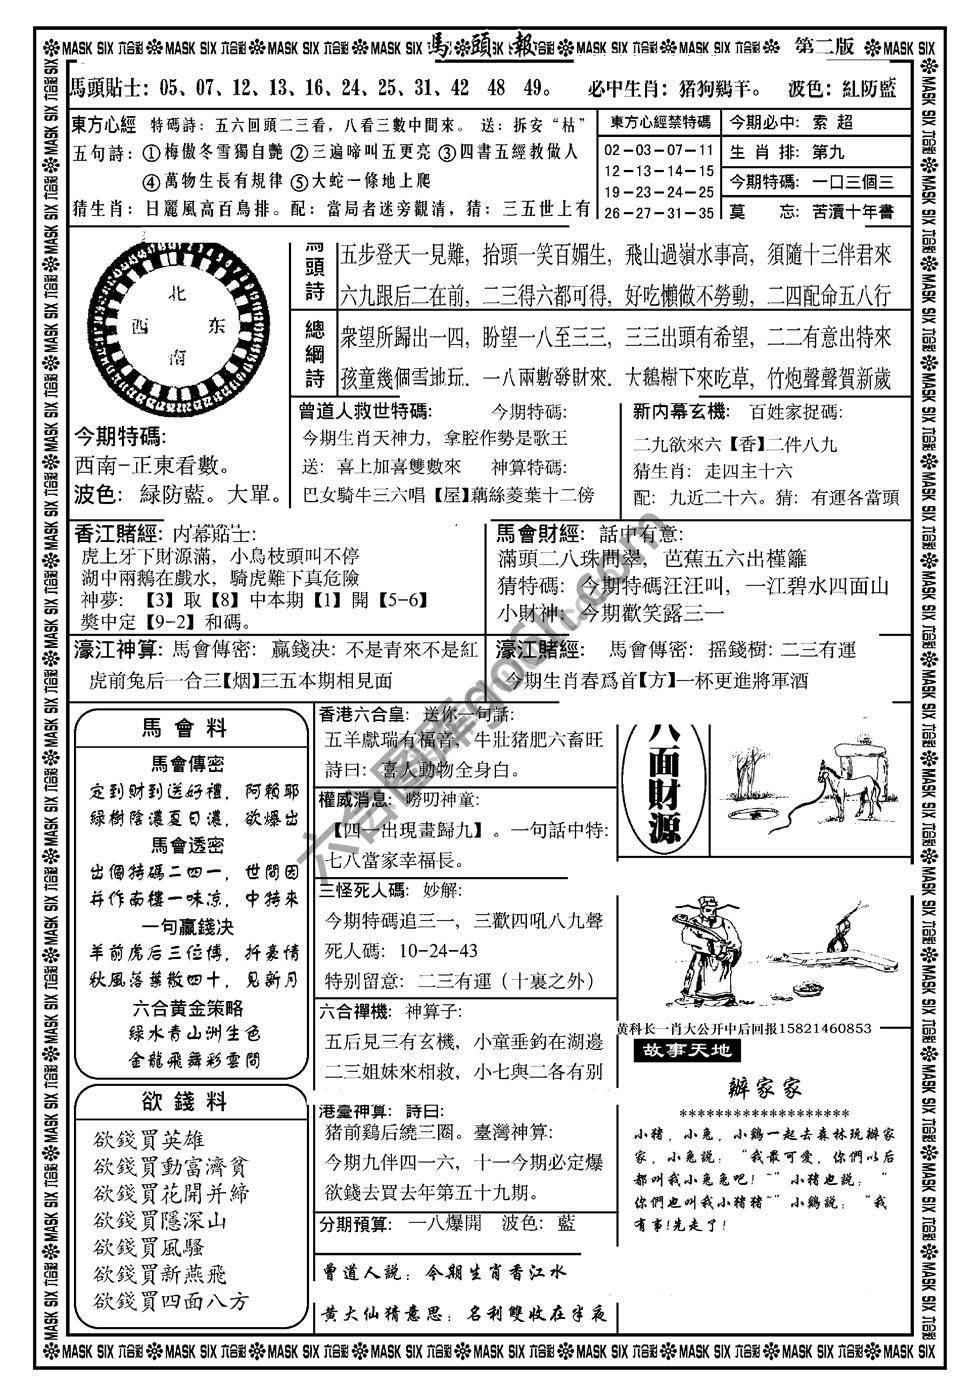 MASK SIX 六合彩 MASK SIX 六合彩 MASK SIX 六合彩 MASK SIX 馬頭報 六合彩 MASK SIX 六合彩 MASK SIX 六合彩 第二版 MASK SIX
馬頭貼士: 05、07、12、13、16、24、25、31、42 48 49。 必中生肖: 猪狗鷄羊。 波色: 紅防藍
東方心經 特碼詩: 五六回頭二三看, 八看三數中間來。 送: 拆安“枯”
五句詩: ①梅傲冬雪獨自艷 ②三遍啼叫五更亮 ③四書五經教做人
④萬物生長有規律 ⑤大蛇一條地上爬
猜生肖: 日麗風高百鳥排。配: 當局者迷旁觀清, 猜: 三五世上有
東方心經禁特碼
02-03-07-11
12-13-14-15
19-23-24-25
26-27-31-35
今期必中: 索 超
生 肖 排: 第九
今期特碼: 一口三個三
莫 忘: 苦瀆十年書
北
西 东
南
今期特碼:
西南-正東看數。
波色: 緑防藍。大單。
馬頭詩
五步登天一見難, 抬頭一笑百媚生, 飛山過嶺水事高, 須隨十三伴君來
六九跟后二在前, 二三得六都可得, 好吃懶做不勞動, 二四配命五八行
總綱詩
衆望所歸出一四, 盼望一八至三三, 三三出頭有希望, 二二有意出特來
孩童幾個雪地玩. 一八兩數發財來. 大鵝樹下來吃草, 竹炮聲聲賀新歲
曾道人救世特碼: 今期特碼:
今期生肖天神力, 拿腔作勢是歌王
送: 喜上加喜雙數來 神算特碼:
巴女騎牛三六唱【屋】藕絲菱葉十二傍
新内幕玄機: 百姓家捉碼:
二九欲來六【香】二件八九
猜生肖: 走四主十六
配: 九近二十六。猜: 有運各當頭
香江賭經: 内幕貼士:
虎上牙下財源滿, 小鳥枝頭叫不停
湖中兩鵝在戲水, 騎虎難下真危險
神夢: 【3】取【8】中本期【1】開【5-6】
獎中定【9-2】和碼。
馬會財經: 話中有意:
滿頭二八珠問翠, 芭蕉五六出槿籬
猜特碼: 今期特碼汪汪叫, 一江碧水四面山
小財神: 今期歡笑露三一
濠江神算: 馬會傳密: 贏錢决: 不是青來不是紅
虎前兔后一合三【烟】三五本期相見面
濠江賭經: 馬會傳密: 摇錢樹: 二三有運
今期生肖春爲首【方】一杯更進將軍酒
馬 會 料
馬會傳密
定到財到送好禮, 阿賴耶
緑樹陰濃夏日濃, 欲爆出
馬會透密
出個特碼二四一, 世間因
并作南樓一味凉, 中特來
一句贏錢决
羊前虎后三位傳, 折豪情
秋風落葉散四十, 見新月
六合黄金策略
緑水青山洲生色
金龍飛舞彩雲間
欲 錢 料
欲錢買英雄
欲錢買動富濟貧
欲錢買花開并締
欲錢買隱深山
欲錢買風騷
欲錢買新燕飛
欲錢買四面八方
香港六合皇: 送你一句話:
五羊獻瑞有福音, 牛壯猪肥六畜旺
詩曰: 喜人動物全身白。
權威消息: 嘮叨神童:
【四一出現畫歸九】。一句話中特:
七八當家幸福長。
三怪死人碼: 妙解:
今期特碼追三一, 三歡四吼八九聲
死人碼: 10-24-43
特别留意: 二三有運（十裏之外）
六合禪機: 神算子:
五后見三有玄機, 小童垂釣在湖邊
二三姐妹來相救, 小七與二各有别
港臺神算: 詩曰:
猪前鷄后繞三圈。臺灣神算:
今期九伴四一六, 十一今期必定爆
欲錢去買去年第五十九期。
分期預算: 一八爆開 波色: 藍
曾道人説: 今期生肖香江水
黄大仙猜意思: 名利雙收在半夜
八面財源
黄科长一肖大公开中后回报15821460853
故事天地
辦家家
********************
小猪, 小兔, 小鷄一起去森林玩辦家
家, 小兔説: “我最可愛, 你們以后
都叫我小兔兔吧! ” 小猪也説: “
你們也叫我小猪猪~” 小鷄説: “我
有事!先走了!
六合图库go6h.com
MASK SIX 六合彩 MASK SIX 六合彩 MASK SIX 六合彩 MASK SIX 六合彩 MASK SIX 六合彩 MASK SIX 六合彩 MASK SIX 六合彩 MASK SIX 六合彩 MASK SIX